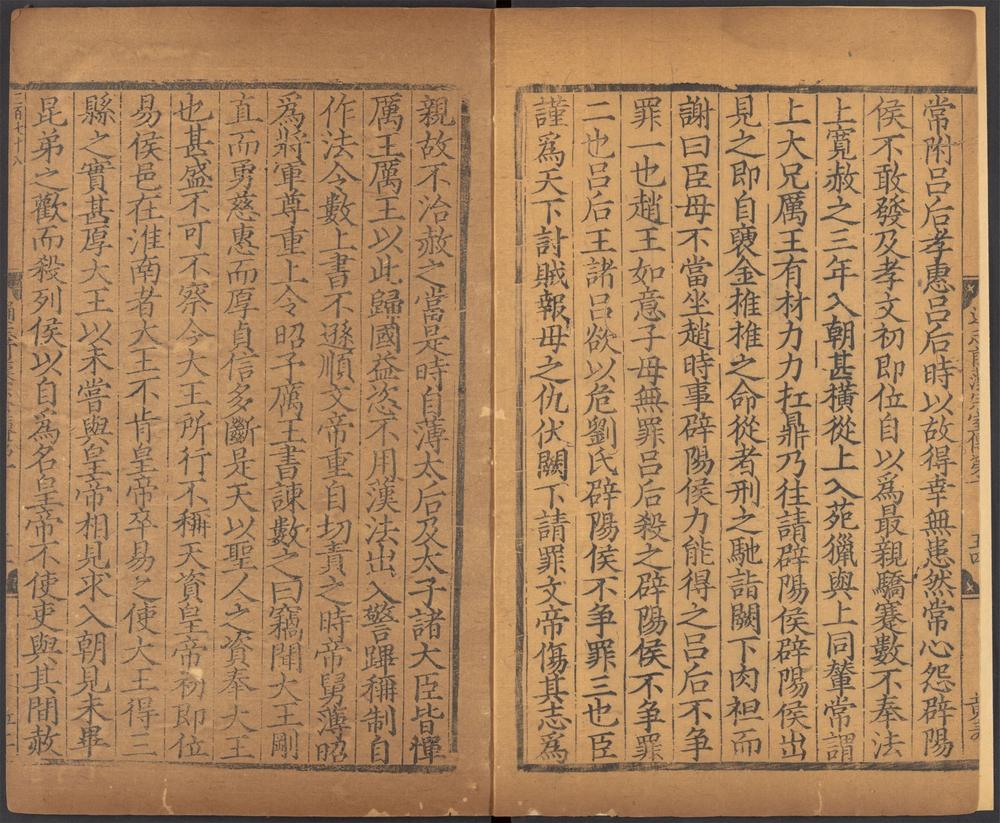 常附吕后孝惠吕后時以故得幸無患然常心怨辟陽
侯不敢發及孝文初即位自以爲最親驕蹇數不奉法
上寛赦之三年入朝甚橫從上入苑獵與上同輦常謂
上大兄厲王有材力力扛鼎乃往請辟陽侯辟陽侯出
見之即自褏金椎椎之命從者刑之馳詣闕下肉袒而
謝曰臣母不當坐趙時事辟陽侯力能得之吕后不争
罪一也趙王如意子母無罪吕后殺之辟陽侯不争罪
二也吕后王諸吕欲以危劉氏辟陽侯不争罪三也臣
謹爲天下討賊報母之仇伏闕下請罪文帝傷其志爲
親故不治赦之當是時自薄太后及太子諸大臣皆憚
厲王厲王以此歸國益恣不用漢法出入警蹕稱制自
作法令數上書不遜順文帝重自切責之時帝舅薄昭
爲將軍尊重上令昭予厲王書諫數之曰竊聞大王剛
直而勇慈惠而厚貞信多斷是天以聖人之資奉大王
也甚盛不可不察今大王所行不稱天資皇帝初即位
易侯邑在淮南者大王不肯皇帝卒易之使大王得三
縣之實甚厚大王以未嘗與皇帝相見求入朝見未畢
昆弟之歡而殺列侯以自爲名皇帝不使吏與其間赦
二百七十八